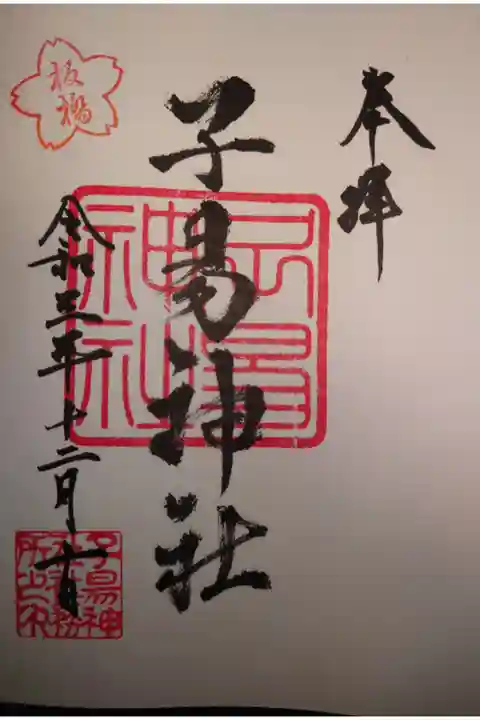 奉拝
子易神社
子易神社
令和三年十二月十一日
板橋
子易神社務所之印